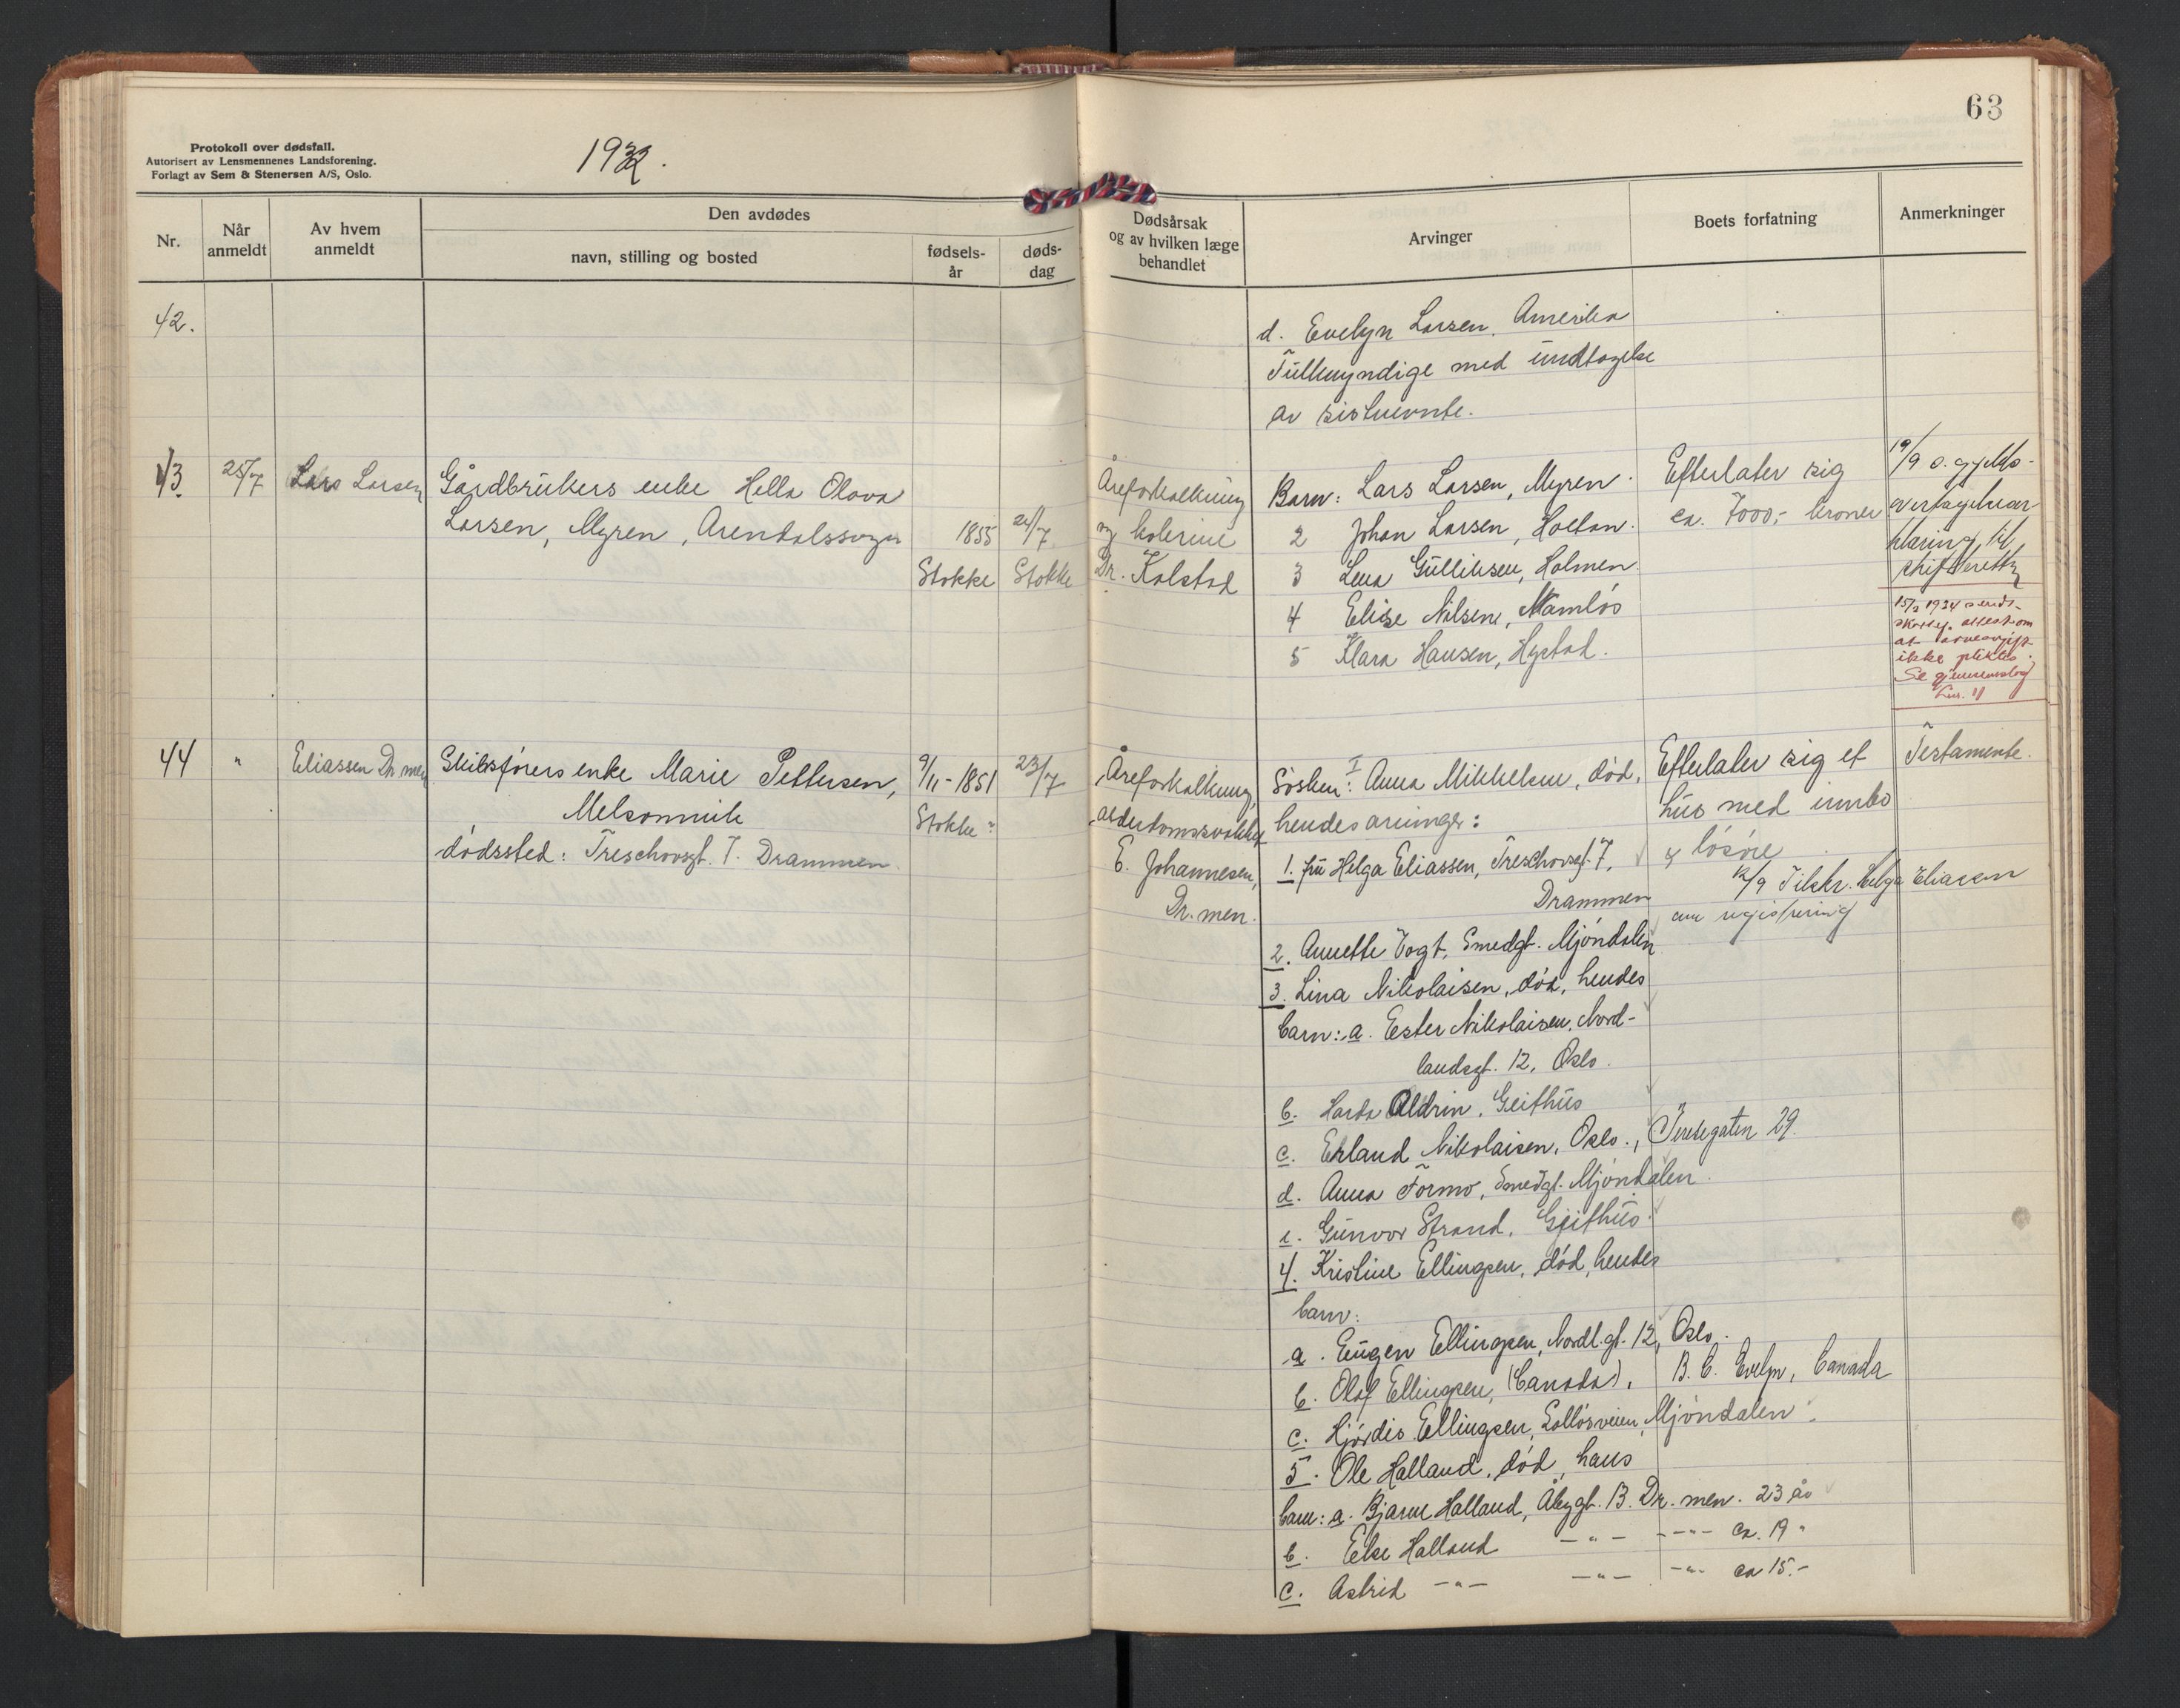 63
Protokoll over dødsfall.
Autorisert av Lensmennenes Landsforening.
Forlagt av Sem & Stenersen A/S, Oslo.
1932.
Nr.
Når anmeldt
Av hvem anmeldt
Den avdødes
navn, stilling og bosted
fødsels-
år
døds-
dag
Dødsårsak
og av hvilken læge
behandlet
Arvinger
Boets forfatning
Anmerkninger
42.
d. Evelyn Larsen, Amerika
Fullmyndige med undtagelse
av sistnevnte.
43. 25/7 Lars Larsen
Gårdbrukers enke Hella Olava
Larsen, Myren, Arendalssogn 1855 24/7
Stokke Stokke
Åreforkalkning
og kolerine
Dr. Kolstad
Barn: Lars Larsen, Myren.
2 Johan Larsen, Holtan.
3 Lena Gulliksen, Holmen
4 Elise Nilsen, Namløs
5 Klara Hansen, Hystad.
Efterlater sig
ca. 7000,- kroner
19/9 o. gjelds-
overtagelseser-
klæring til
skifteretten
15/2 1934 sends.
skorey. attest om
at arveavgift
ikke pliktes.
Se gjennemslag
44 " Eliassen Dr.men
Skibsførers enke Marie Pettersen,
Melsomvik
dødssted: Treschowsgt. 7. Drammen
9/11-1851 23/7
Stokke?
Åreforkalkning,
alderdomssvakhet
E. Johannesen,
Dr.men.
I
Søsken: Anna Mikkelsen, død,
hendes arvinger:
1. fru Helga Eliassen, Treschowsgt. 7,
Drammen
2. Annette Vogt, Smedgt. Mjøndalen
3. Lina Nikolaisen, død, hendes
barn: a. Ester Nikolaisen, Nord-
landsgt. 12, Oslo.
b. Harda Aldrin, Geithus
c. Erland Nikolaisen, Oslo., Teresegaten 29.
d. Anna Formo, Smedgt. Mjøndalen.
e. Gunvor Strand, Gjeithus.
4. Kristine Ellingsen, død, hendes
barn:
a. Eugen Ellingsen, Nordl.gt. 12, Oslo.
b. Olaf Ellingsen, (Canada), B.C. Evelyn, Canada
c. Hjørdis Ellingsen, Solløsveien, Mjøndalen.
5. Ole Halland, død, hans
barn: a. Bjarne Halland, Åbygt. 13. Dr.men. 23 år
b. Else Halland -"- -"- ca. 19 "
c. Astrid -"- -"- -"- ca 15.-
Efterlater sig et
hus med innbo
& løsøre
12/9 Tilskr. Helga Eliassen
om registrering
Testamente.